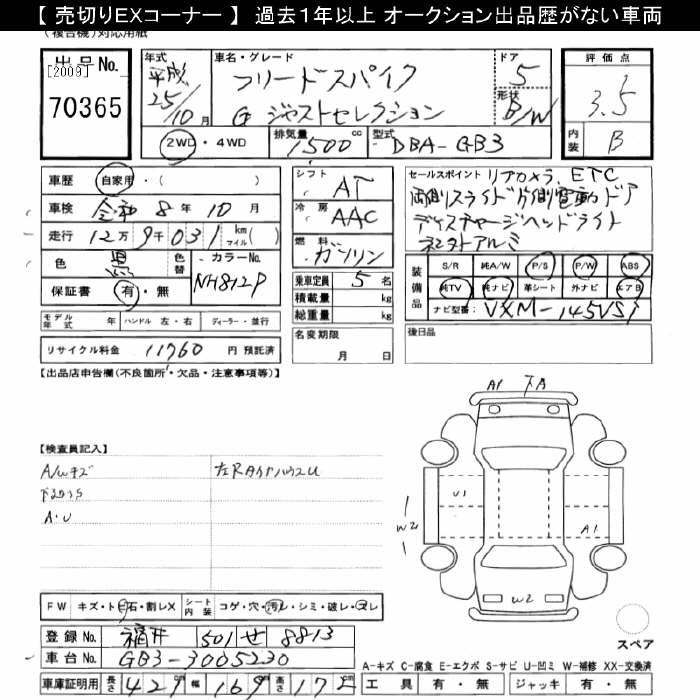 【 売切りＥＸコーナー 】 過去１年以上 オークション出品歴がない車両
(複合機)対応用紙
出品No. [2009] 70365
年式 平成25/10月
車名・グレード フリードスパイク G ジャストセレクション
ドア 5
形状 B/W
評価点 3.5
内装 B
2WD・4WD
排気量 1500cc
型式 DBA-GB3
車歴 自家用・( )
車検 令和8年10月
走行 12万9千031 km マイル( )
色 黒 色替 カラーNo. NH812P
保証書 有・無
モデル年式 年 ハンドル 左・右 ディーラー・並行
リサイクル料金 11760 円 預託済
シフト AT
冷房 AAC
燃料 ガソリン
乗車定員 5名
積載量 kg
総重量 kg
名変期限 月 日
セールスポイント リアカメラ、ETC
両側スライド片側電動ドア
ディスチャージヘッドライト
社外アルミ
装備品 S/R 純A/W P/S P/W ABS
純TV 純ナビ 革シート 外ナビ エアB
ナビ型番: VXM-145VSi
後日品
【出品店申告欄(不良箇所・欠品・注意事項等)】
【検査員記入】
A/Wキズ
下回りS
A・U
左RタイヤハウスU
A1 下A
U1
W2
A1
W2
スペア
FW キズ・トビ石・割レX シート内装 コゲ・穴・汚レ・シミ・破レ・スレ
登録No. 福井 501 せ 8813
車台No. GB3-3005230
車庫証明用 長さ 427 幅 169 高さ 172
A-キズ C-腐食 E-エクボ S-サビ U-凹ミ W-補修 XX-交換済
工具 有・無 ジャッキ 有・無